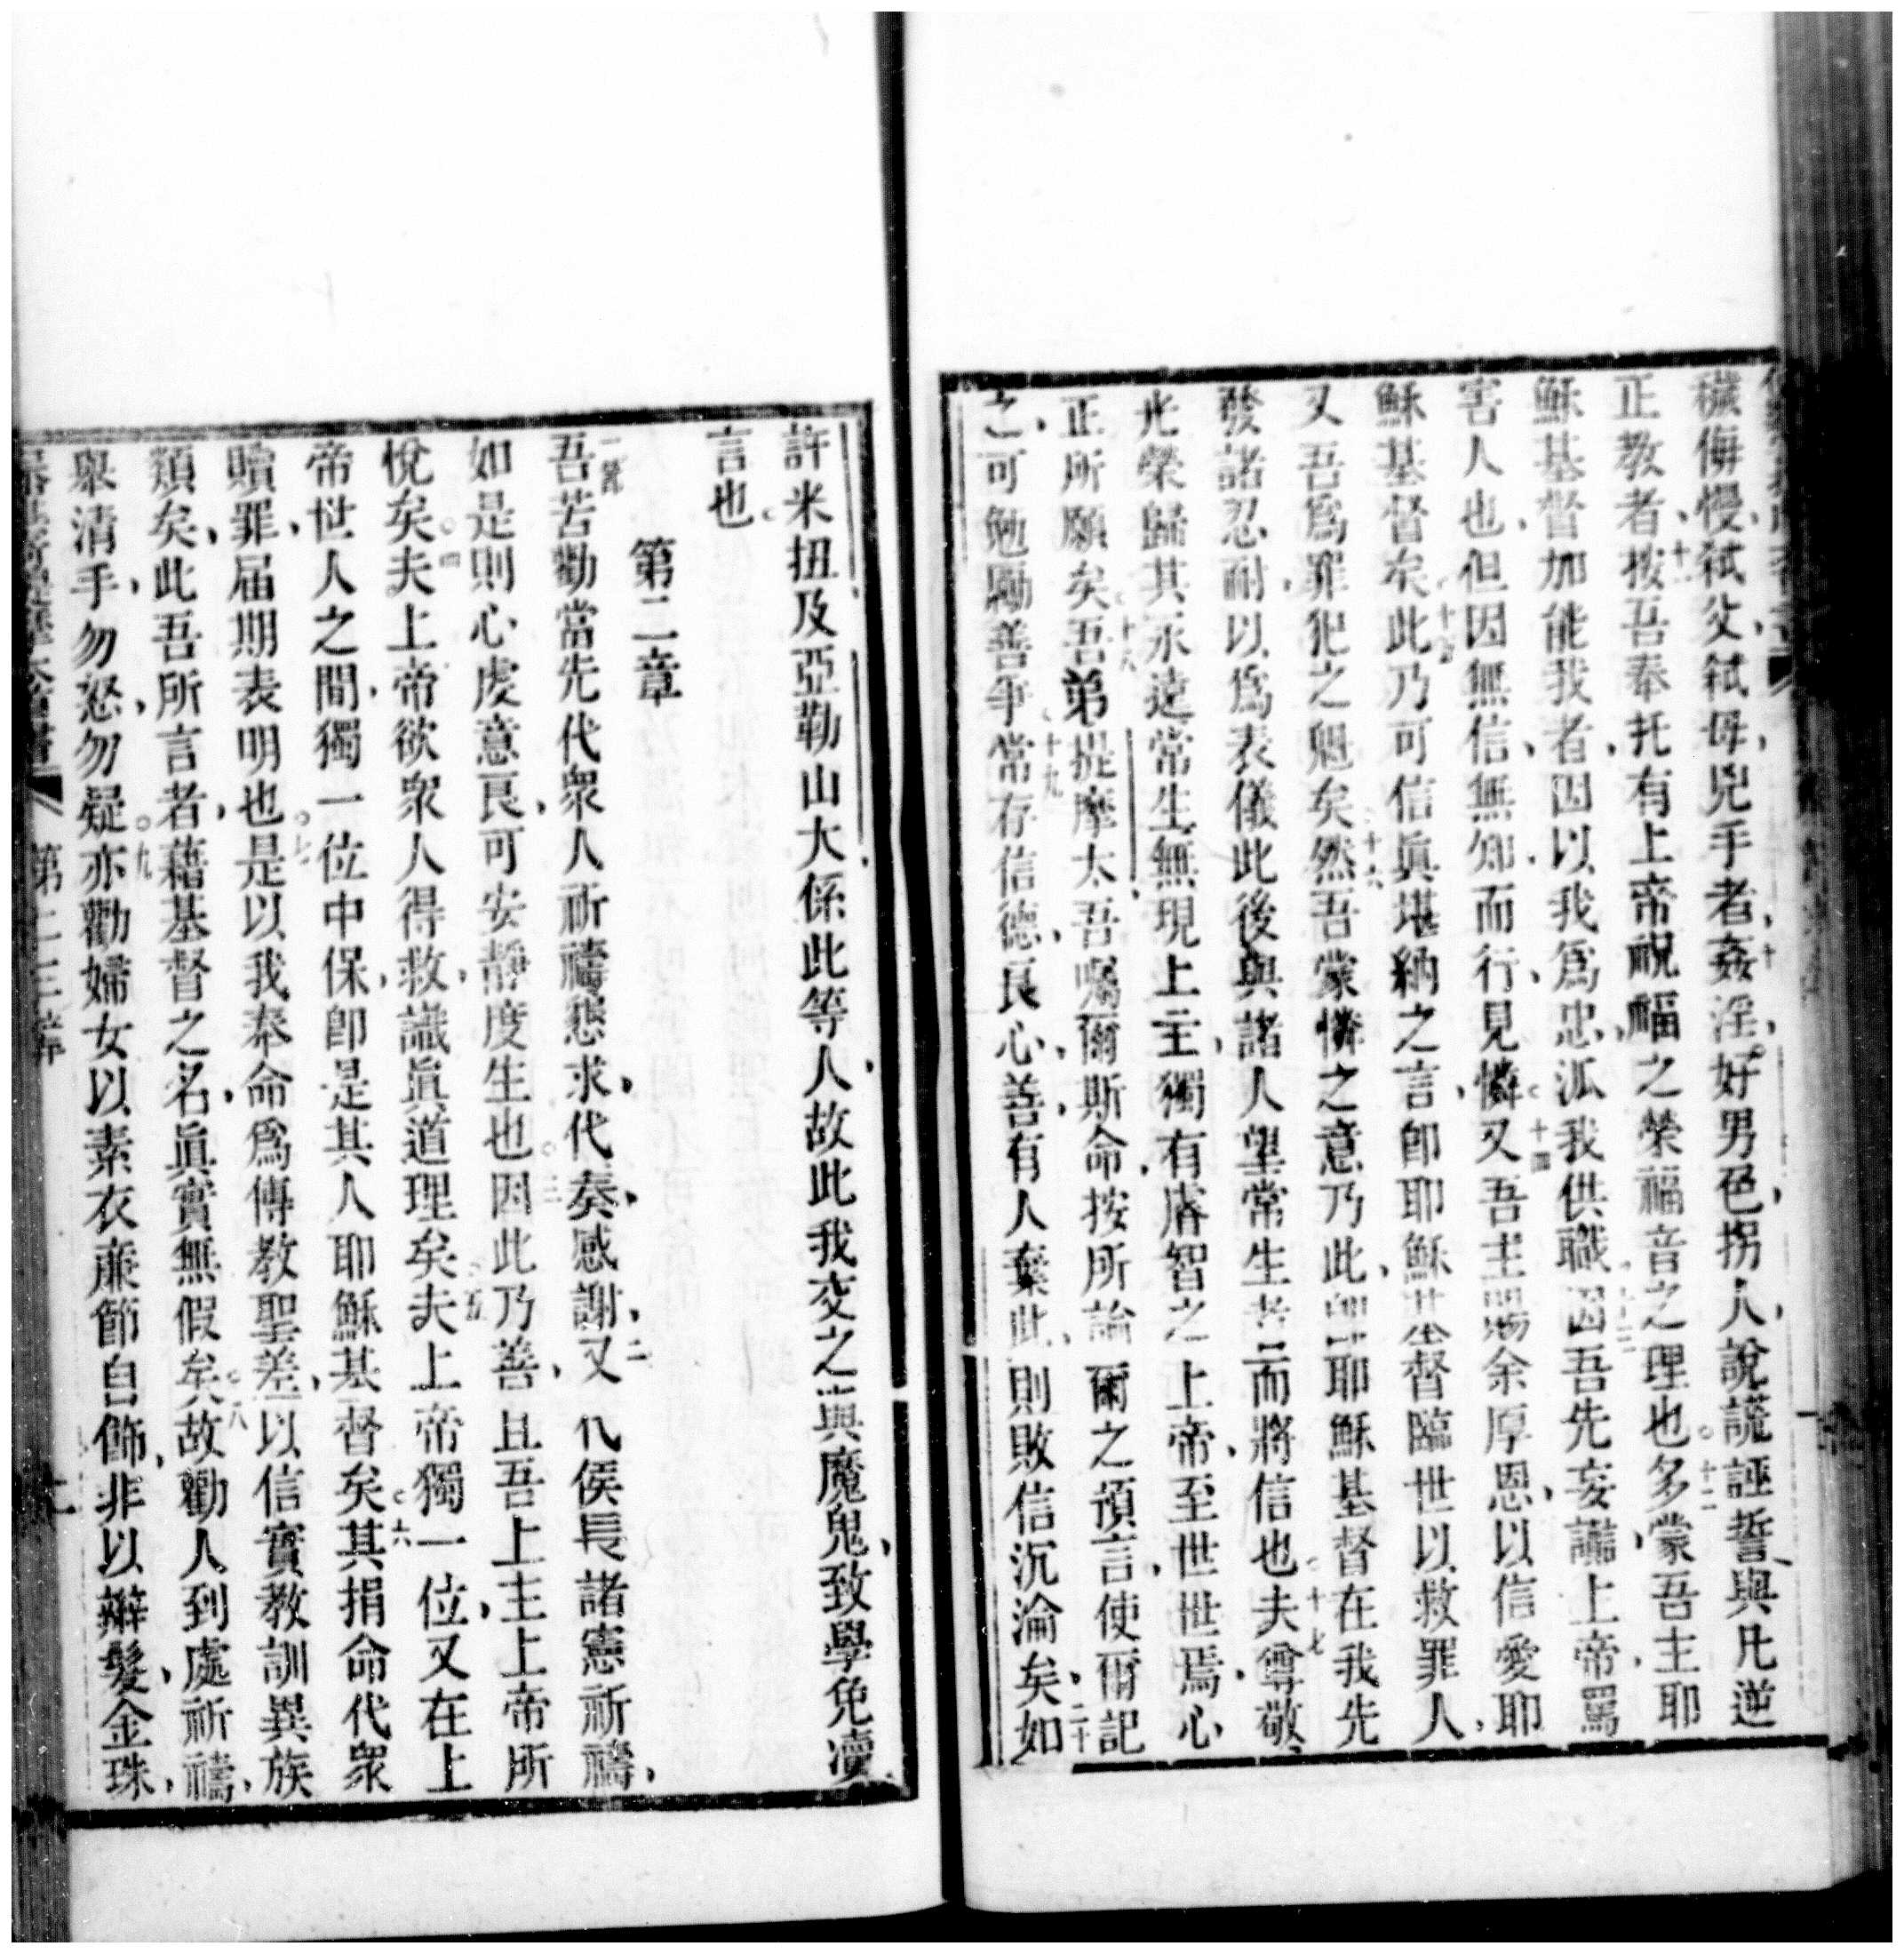 穢侮慢弒父弒母兇手者十姦淫好男色拐人說謊誣誓與凡逆
正教者十一按吾奉托有上帝祝福之榮福音之理也十二多蒙吾主耶
穌基督加能我者因以我為忠派我供職十三因吾先妄讟上帝罵
害人也但因無信無知而行見憐十四又吾主賜余厚恩以信愛耶
穌基督矣十五此乃可信眞堪納之言卽耶穌基督臨世以救罪人
又吾為罪犯之魁矣十六然吾蒙憐之意乃此卽耶穌基督在我先
發諸忍耐以為表儀此後與諸人望常生者而將信也十七夫尊敬
光榮歸其永遠常生無現上主獨有睿智之上帝至世世焉心
正所願矣十八吾弟提摩太吾囑爾斯命按所論爾之預言使爾記
之可勉勵善爭十九常存信德良心善有人棄此則敗信沉淪矣二十如
許米扭及亞勒山大係此等人故此我交之與魔鬼致學免瀆
言也
第二章
一節吾苦勸當先代衆人祈禱懇求代奏感謝二又代侯長諸憲祈禱
如是則心虔意良可安靜度生也三因此乃善且吾上主上帝所
悅矣四夫上帝欲衆人得救識眞道理矣五夫上帝獨一位又在上
帝世人之間獨一位中保卽是其人耶穌基督矣六其捐命代衆
贖罪届期表明也七是以我奉命為傳教聖差以信實教訓異族
類矣此吾所言者藉基督之名眞實無假矣八故勸人到處祈禱
舉清手勿怒勿疑九亦勸婦女以素衣廉節自飾非以辮髮金珠
第二三章